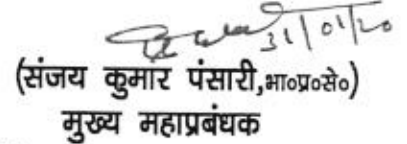 31/01/20
(संजय कुमार पंसारी,भा०प्र०से०)
मुख्य महाप्रबंधक